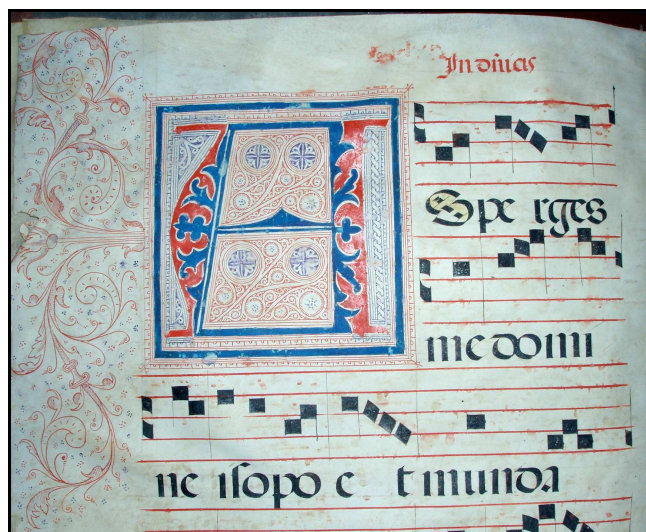 In dn̄icis
A
Spe rges
me domi
ne isopo e t munda